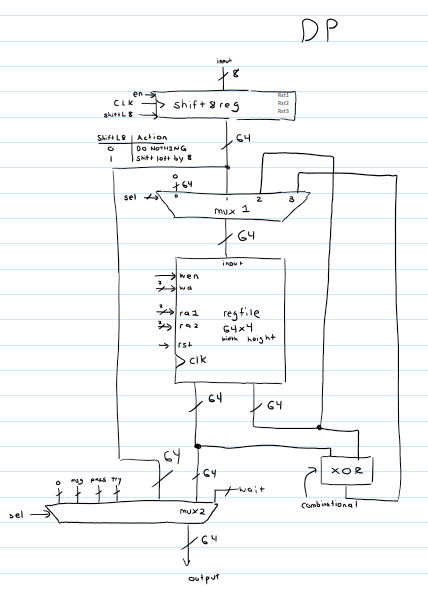 DP
input
8
en
CLK
shiftL8
shift 8 reg
Rst1
Rst2
Rst3
64
ShiftL8 Action
0 DO NOTHING
1 Shift left by 8
0
64
sel
0 1 2 3
mux 1
64
input
wen
2 wa
2 ra1
2 ra2
rst
clk
regfile
64x4
width height
64
64
64
64
XOR
combinational
0 msg pass try
wait
sel
mux2
64
output